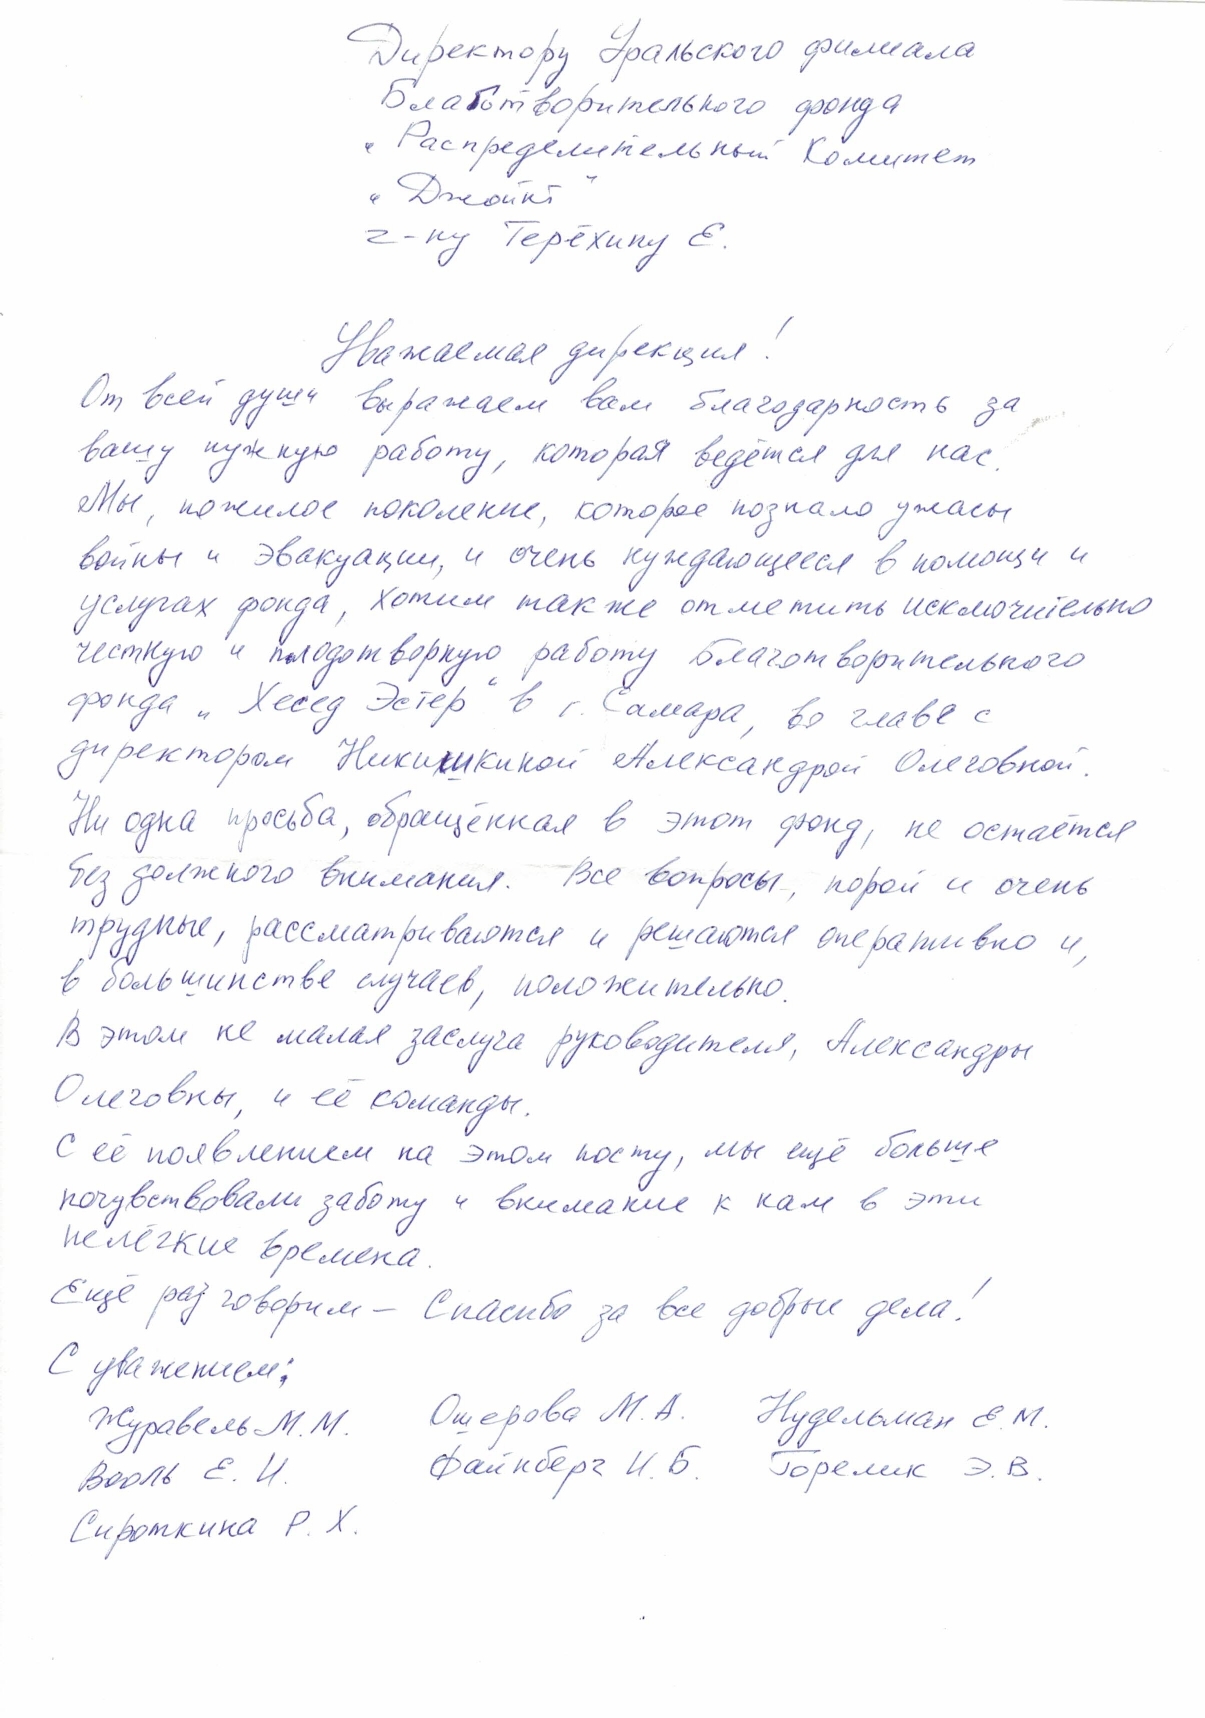 Директору Уральского филиала
Благотворительного фонда
„Распределительный Комитет
„Джойнт"
г-ну Терёхину Е.
Уважаемая дирекция!
От всей души выражаем вам благодарность за
вашу нужную работу, которая ведётся для нас.
Мы, пожилое поколение, которое познало ужасы
войны и эвакуации, и очень нуждающееся в помощи и
услугах фонда, хотим также отметить исключительно
честную и плодотворную работу Благотворительного
фонда „Хесед Эстер" в г. Самара, во главе с
директором Никишкиной Александрой Олеговной.
Ни одна просьба, обращённая в этот фонд, не остаётся
без должного внимания. Все вопросы, порой и очень
трудные, рассматриваются и решаются оперативно и,
в большинстве случаев, положительно.
В этом не малая заслуга руководителя, Александры
Олеговны, и её команды.
С её появлением на этом посту, мы ещё больше
почувствовали заботу и внимание к нам в эти
нелёгкие времена.
Ещё раз говорим — Спасибо за все добрые дела!
С уважением:
Журавель М.М. Ошерова М.А. Нудельман Е.М.
Вооль Е.И. Файнберг И.Б. Горелик Э.В.
Сироткина Р.Х.